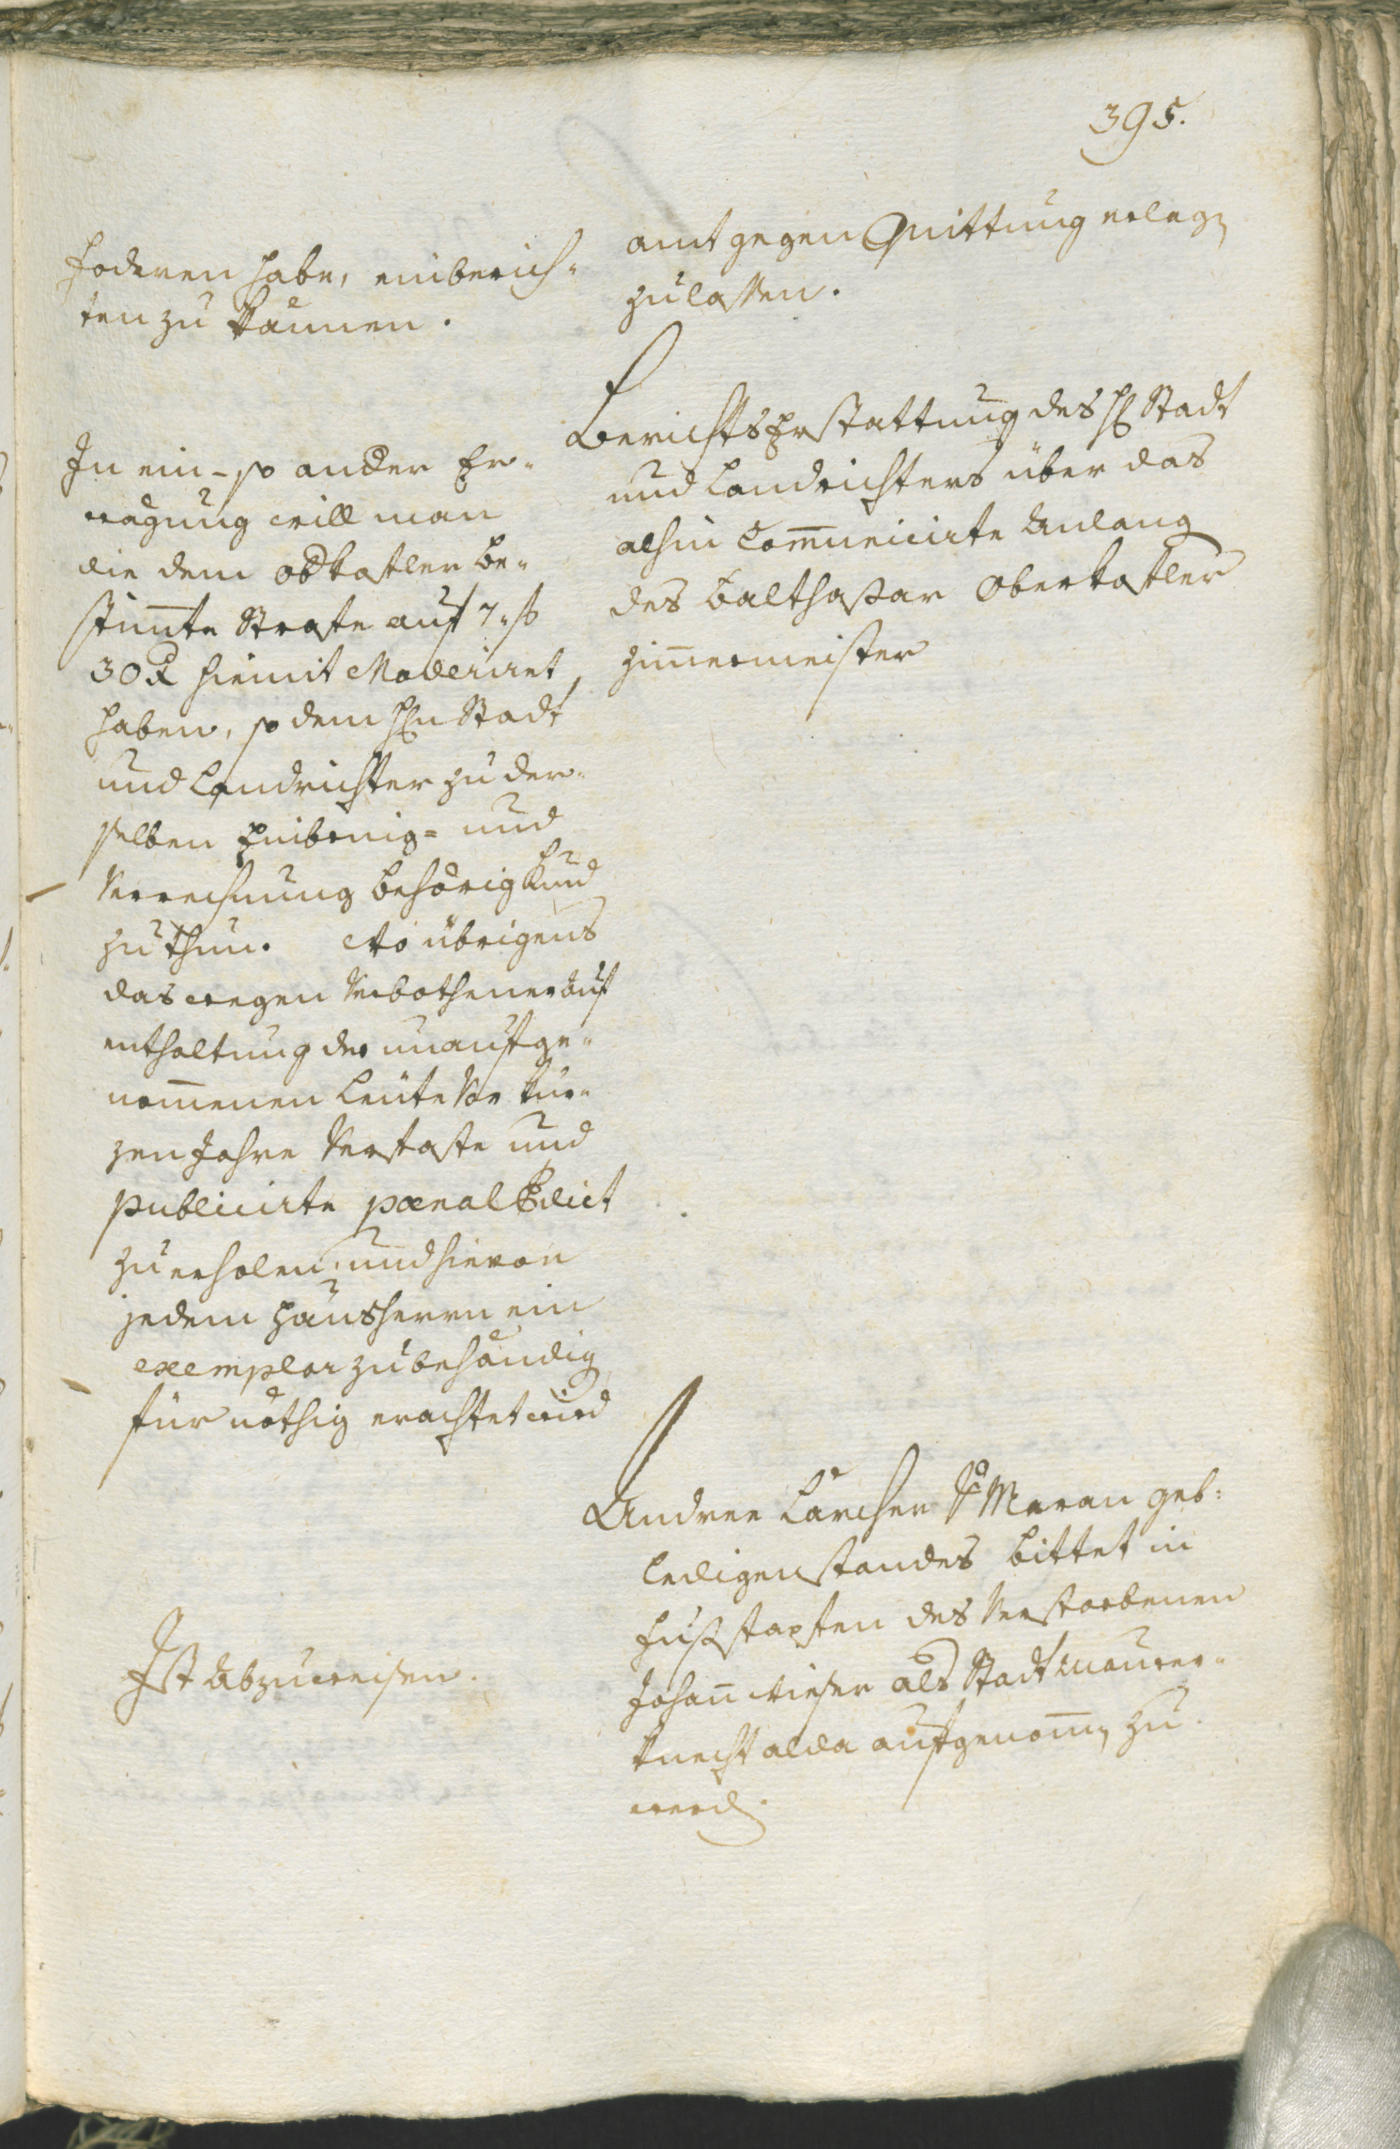 395.
foderen habe, einberich-
ten zu können.
In ein- so ander Er-
wägung will man
die dem obkofler be-
stim̄te Strafe auf 7. fl
30 x hiemit Moderiret
haben, so dem hℓn Stadt
und Landrichter zu der-
selben Einbring- und
Verrechnung behörig kund
zu thun. Wo übrigens
das wegen Verbothener auf
enthaltung der unaufge-
nom̄enen Leüte Vor kur-
zen Jahre Verfaste und
publicirte pœnal Edict
zu erholen, und hievon
jedem Hausherrn ein
exemplar zu behändig
für nöthig erachtet wird
Ist abzuweisen.
amt gegen Quittung erlegen
zu lassen.
Berichts Erstattung des hℓ Stadt
und Landrichters über das
alhin Com̄unicirte Anlang
des Balthasar Oberkofler
Zim̄ermeister
Andree Larcher Vo Meran geb:
ledigen standes bittet in
Fußstapfen des Verstorbenen
Johan̄ Wieser als Stadt Maurer-
knecht alda aufgenom̄en zu
werden.